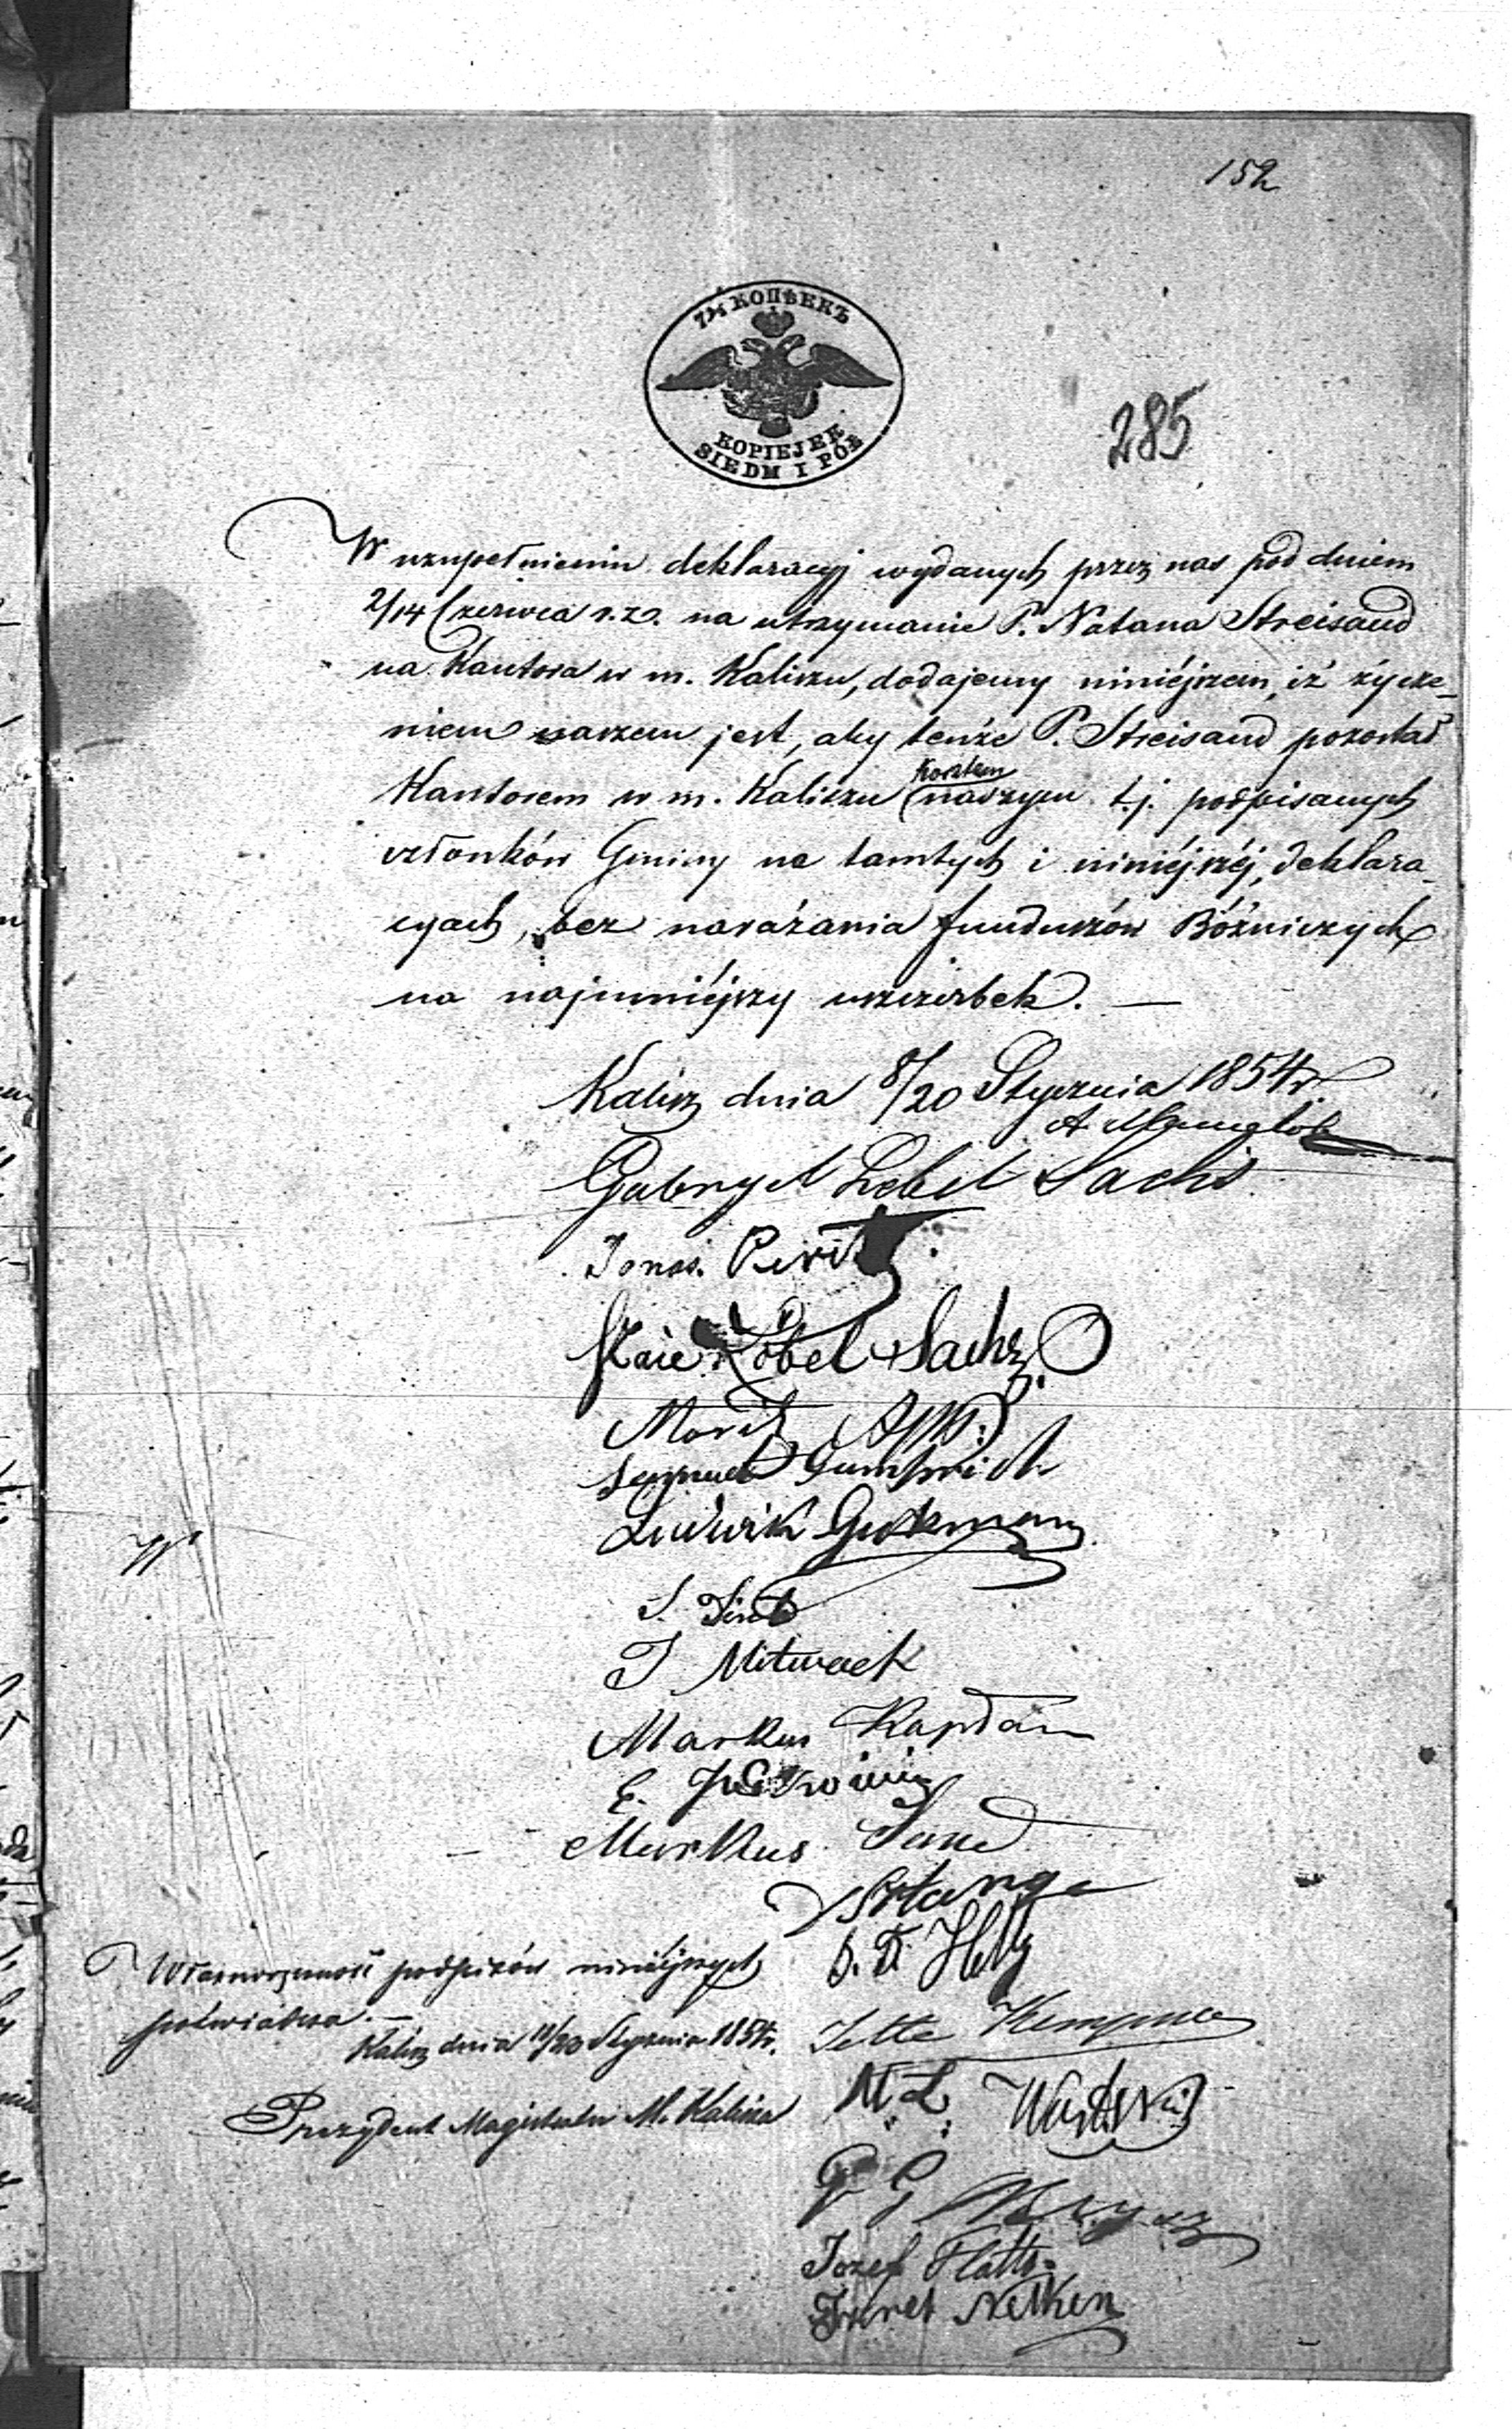 152
7½ КОПѢЕКЪ
KOPIEJEK
SIEDM I PÓŁ
285
W uzupełnieniu deklaracyj wydanych przez nas pod dniem
2/14 Czerwca r.z. na utrzymanie P. Natana Streisand
na Kantora w m. Kaliszu, dodajemy niniéjszem, iż życze-
niem naszem jest, aby tenże P. Streisand pozostał
Kantorem w m. Kaliszu kosztem naszym t.j. podpisanych
członków Gminy na tamtych i niniéjszéj deklara-
cyach, bez narażania funduszów Bóżniczych
na najmniéjszy uszczerbek. —
Kalisz dnia 8/20 Stycznia 1854 r.
A
Gabryel Lebel Sachs
Jonas Peritz
Löbel Sachs
Moritz
Samuel Gumprich
Ludwik Gutman
S.
J Mitwoch
Markus Kapłan
E.
Markus
Stange
S. D.
Własnoręczność podpisów niniéjszych
poświadcza. —
Kalisz dnia /20 Stycznia 1854 r.
Jette Kempner
Prezydent Magistratu M. Kalisza
M. L. Wartski
G
Jozef Flatto
Nelken